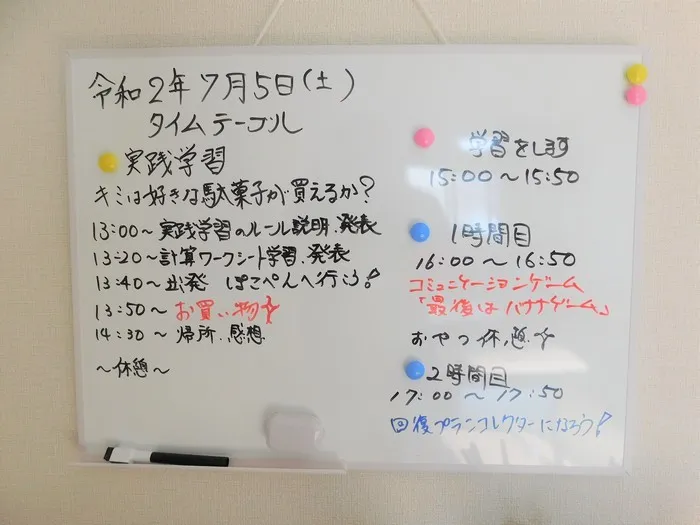 令和2年7月5日(土)
タイムテーブル
実践学習
キミは好きな駄菓子が買えるか?
13:00~実践学習のルール説明、発表
13:20~計算ワークシート学習、発表
13:40~出発 ぽこぺんへ行こう!
13:50~お買い物☆
14:30~帰所、感想
~休憩~
学習をします
15:00~15:50
1時間目
16:00~16:50
コミュニケーションゲーム
「最後はバナナゲーム」
おやつ休憩☆
2時間目
17:00~17:50
回復プランコレクターになろう!